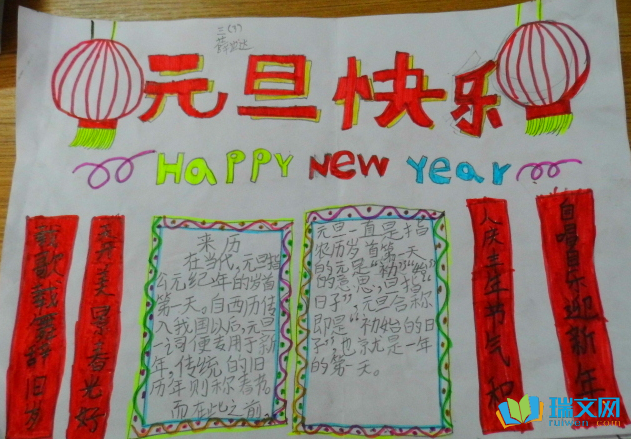 元旦快乐
HAPPY New Year
歌载舞辞旧岁
美景春光好
来历
在当代，元旦指
公元纪年的岁首
第一天。自西历传
入我国以后，元旦
一词便专用于新
年，传统的旧
历年则称春节。
而在此之前，
元旦一直是指
农历岁首第一天
的元是“初”“始”
的意思，旦指“
日子”，元旦合称
即是“初始的日
子”，也就是一年
的第一天。
人庆丰年节气和
自唱自乐迎新年
瑞文网
ruiwen.com